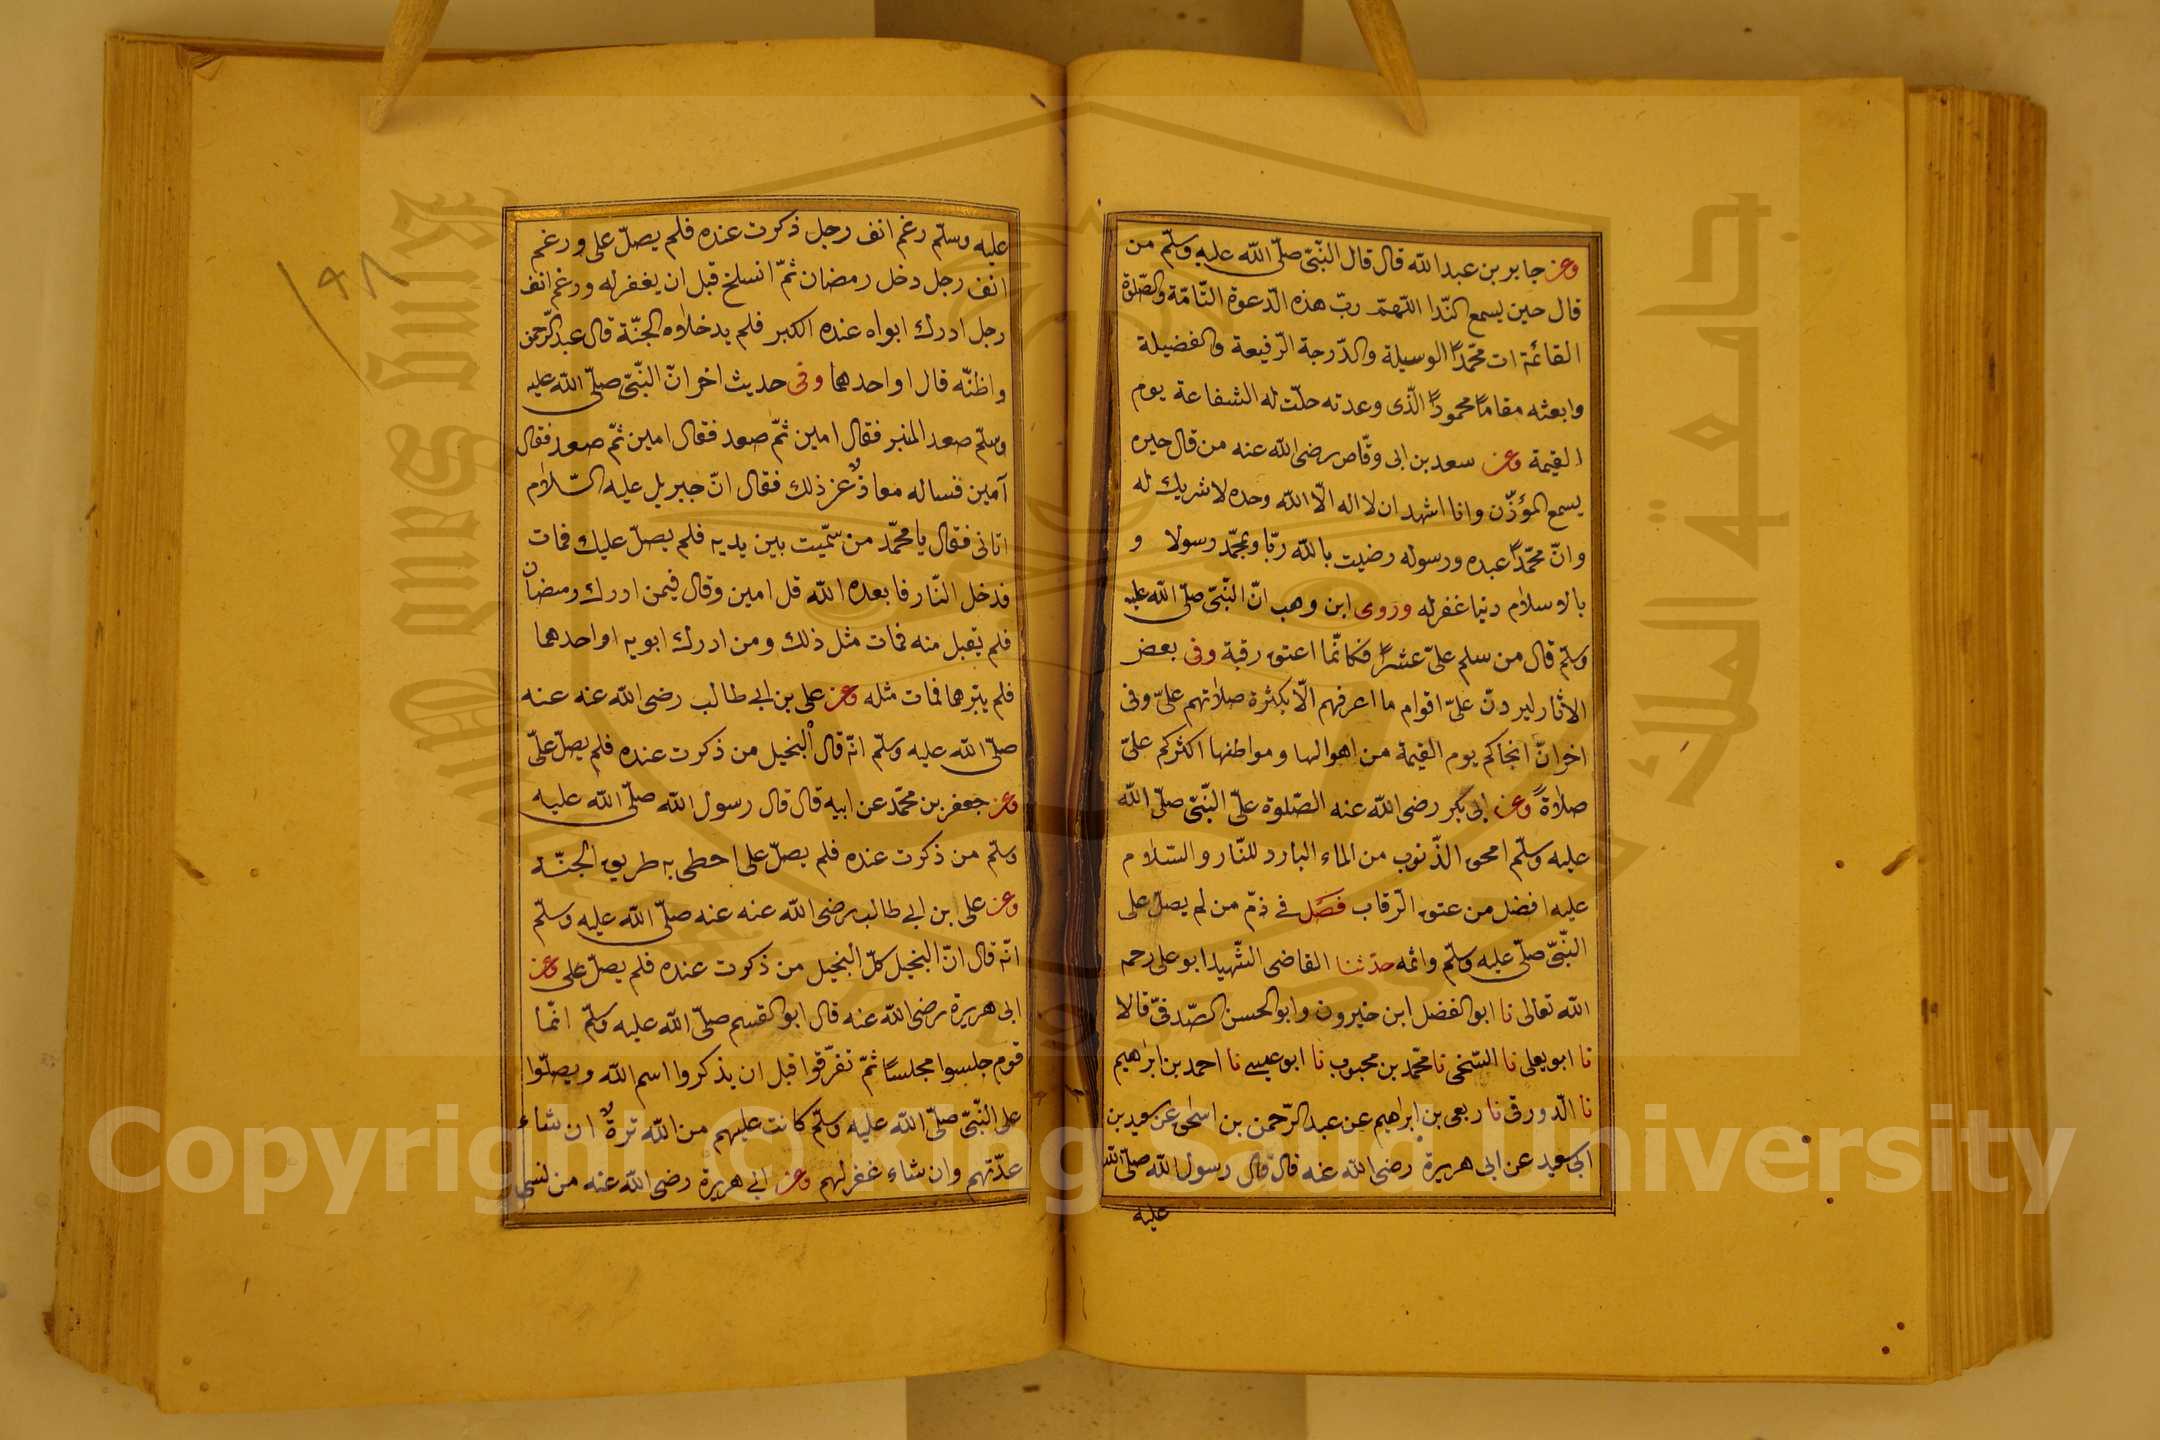 وعن جابر بن عبد الله قال قال النّبيّ صلّى الله عليه وسلّم من
قال حين يسمع النّدا اللّهمّ ربّ هذه الدّعوة التّامّة والصّلوة
القائمة ات محمّداً الوسيلة والدّرجة الرّفيعة والفضيلة
وابعثه مقاماً محموداً الّذى وعدته حلّت له الشفاعة يوم
القيمة وعن سعد بن ابى وقّاص رضى الله عنه من قال حين
يسمع المؤذّن وانا اشهد ان لا اله الّا الله وحده لا شريك له
وانّ محمّداً عبده ورسوله رضيت بالله ربّا وبمحمّد رسولا و
بالاسلام دينا غفر له وروى ابن وهب انّ النّبيّ صلّى الله عليه
وسلّم قال من سلم علىّ عشراً فكانّما اعتق رقبة وفى بعض
الاثار ليردنّ علىّ اقوام ما اعرفهم الّا بكثرة صلاتهم علىّ وفى
اخر انّ انجاكم يوم القيمة من اهوالها ومواطنها اكثركم علىّ
صلاةً وعن ابى بكر رضى الله عنه الصّلوة على النّبيّ صلّى الله
عليه وسلّم امحق الذّنوب من الماء البارد للنّار والسّلام
عليه افضل من عتق الرّقاب فصل في ذمّ من لم يصلّ على
النّبيّ صلّى عليه وسلّم واثمه حدّثنا القاضى الشّهيد ابو على رحمه
الله تعالى نا ابو الفضل ابن خيرون وابو الحسن الصّدفىّ قالا
نا ابو يعلى نا السّنخى نا محمّد بن محبوب نا ابو عيسى نا احمد بن ابرٰهيم
نا الدّورقى نا ربعى بن ابراهيم عن عبد الرّحمن بن اسحٰق عن سعيد بن
ابى سعيد عن ابى هريرة رضى الله عنه قال قال رسول الله صلّى الله
عليه
١٩٨
عليه وسلّم رغم انف رجل ذكرت عنده فلم يصلّ على ورغم
انف رجل دخل رمضان ثمّ انسلخ قبل ان يغفر له ورغم انف
رجل ادرك ابواه عنده الكبر فلم يدخلاه الجنّة قال عبد الرّحمن
واظنّه قال او احدهما وفى حديث اخر انّ النّبيّ صلّى الله عليه
وسلّم صعد المنبر فقال امين ثمّ صعد فقال امين ثمّ صعد فقال
آمين فساله معاذٌ عن ذلك فقال انّ جبريل عليه السّلام
اتانى فقال يا محمّد من سمّيت بين يديه فلم يصلّ عليك فمات
فدخل النّار فابعده الله قل امين وقال فيمن ادرك رمضان
فلم تقبل منه فمات مثل ذلك ومن ادرك ابويه او احدهما
فلم يبرّهما فمات مثله وعن على بن ابي طالب رضى الله عنه عنه
صلّى الله عليه وسلّم انّه قال البخيل من ذكرت عنده فلم يصلّ علىّ
وعن جعفر بن محمّد عن ابيه قال قال رسول الله صلّى الله عليه
وسلّم من ذكرت عنده فلم يصلّ على اخطى به طريق الجنّة
وعن على بن ابي طالب رضى الله عنه عنه صلّى الله عليه وسلّم
انّه قال انّ البخيل كلّ البخيل من ذكرت عنده فلم يصلّ على وعن
ابى هريرة رضى الله عنه قال ابو القسم صلّى الله عليه وسلّم انّما
قوم جلسوا مجلساً ثمّ تفرّقوا قبل ان يذكروا اسم الله ويصلّوا
على النّبيّ صلّى الله عليه وسلّم كانت عليهم من الله ترةٌ ان شاء
عذّبهم وان شاء غفر لهم وعن ابي هريرة رضى الله عنه من نسى
Copyright © King Saud University
King Saud University
جامعة الملك سعود